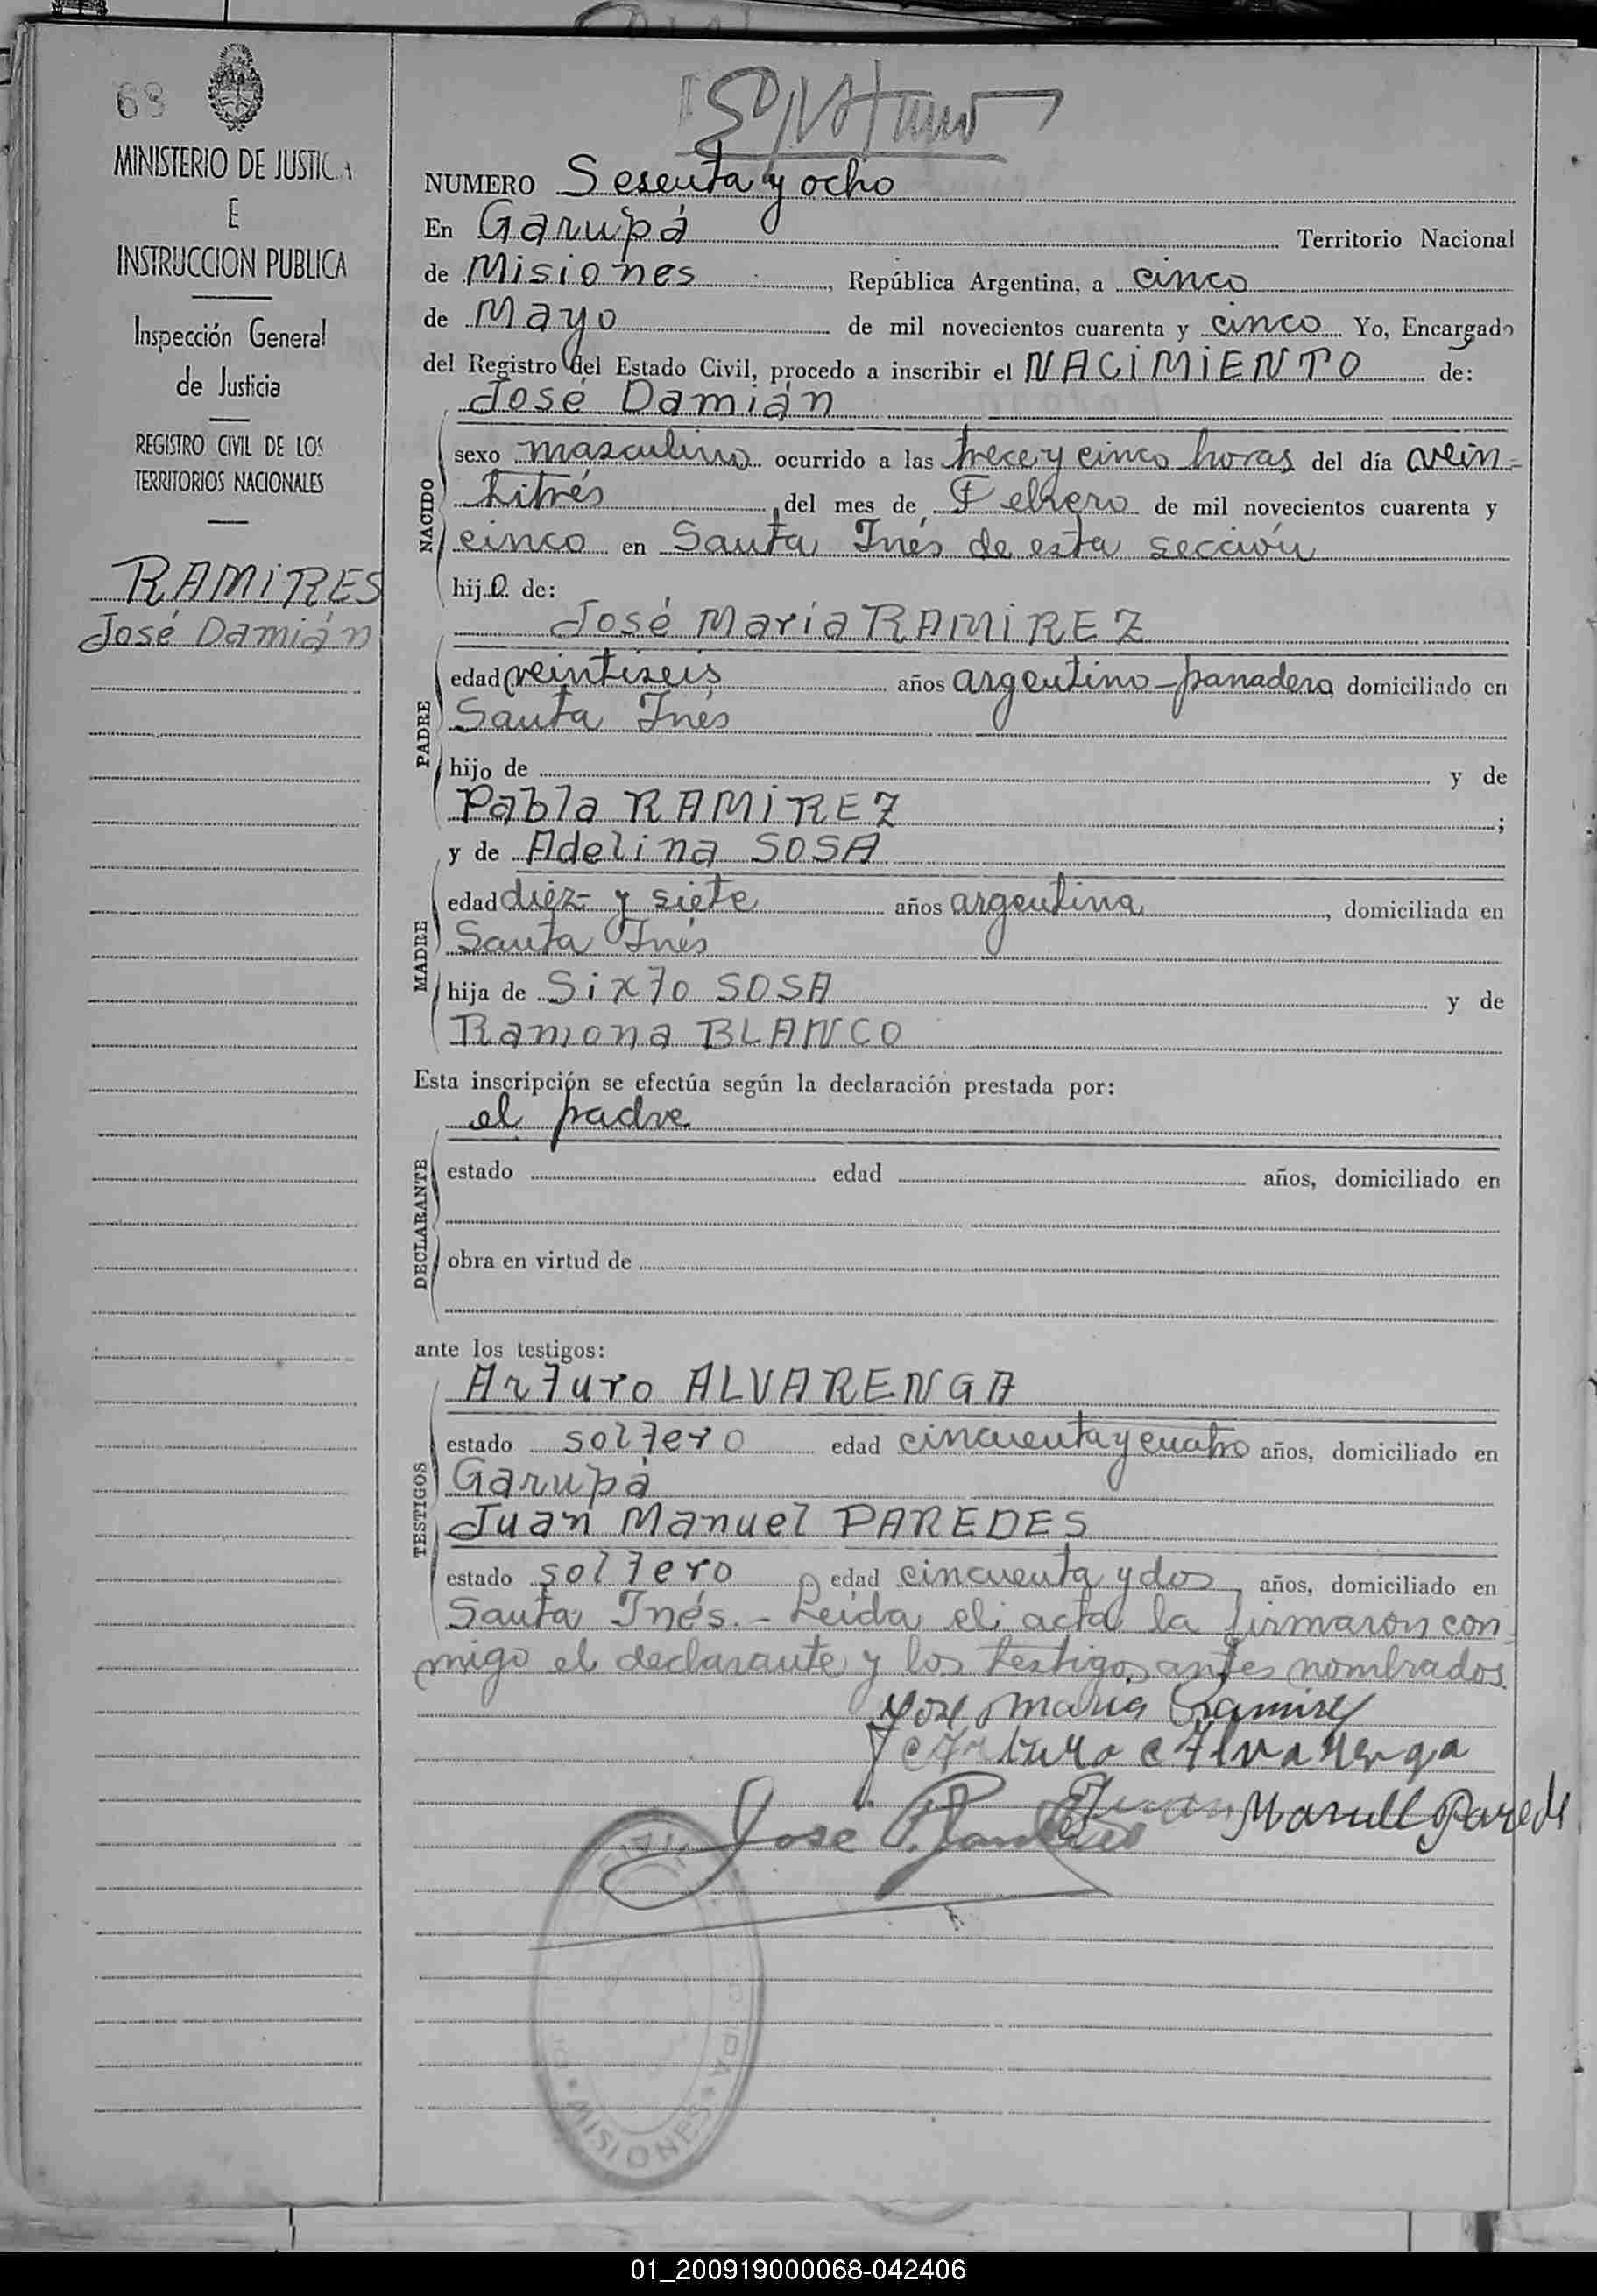 68
MINISTERIO DE JUSTICIA
E
INSTRUCCION PUBLICA
Inspección General
de Justicia
REGISTRO CIVIL DE LOS
TERRITORIOS NACIONALES
RAMIRES
José Damián
NUMERO Sesenta y ocho
En Garupá Territorio Nacional
de Misiones, República Argentina, a cinco
de Mayo de mil novecientos cuarenta y cinco Yo, Encargado
del Registro del Estado Civil, procedo a inscribir el NACIMIENTO de:
José Damián
NACIDO
sexo masculino ocurrido a las trece y cinco horas del día vein-
titrés del mes de Febrero de mil novecientos cuarenta y
cinco en Santa Inés de esta sección
hijo de:
José María RAMIREZ
PADRE
edad veintiseis años argentino-panadero domiciliado en
Santa Inés
hijo de y de
Pabla RAMIREZ ;
y de Adelina SOSA
MADRE
edad diez y siete años argentina, domiciliada en
Santa Inés
hija de Sixto SOSA y de
Ramona BLANCO
Esta inscripción se efectúa según la declaración prestada por:
el padre
DECLARANTE
estado edad años, domiciliado en
obra en virtud de
ante los testigos:
Arturo ALVARENGA
TESTIGOS
estado soltero edad cincuenta y cuatro años, domiciliado en
Garupá
Juan Manuel PAREDES
estado soltero edad cincuenta y dos años, domiciliado en
Santa Inés.- Leída el acta la firmaron con-
migo el declarante y los testigos antes nombrados
Jose Maria Ramirez
Arturo Alvarenga
Juan Manuel Parede
Jose
MISIONES
01_200919000068-042406